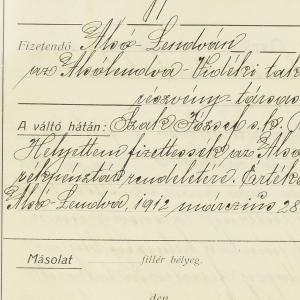 Fizetendő Alsó-Lendván
az Alsólendva-Vidéki tak
részvény-társas
A váltó hátán: Szak József s.k.
Helyettem fizettessék az Alsó
rendeletére. Érték
Alsó-Lendva, 1912 márczius 28
Másolat fillér bélyeg.
den